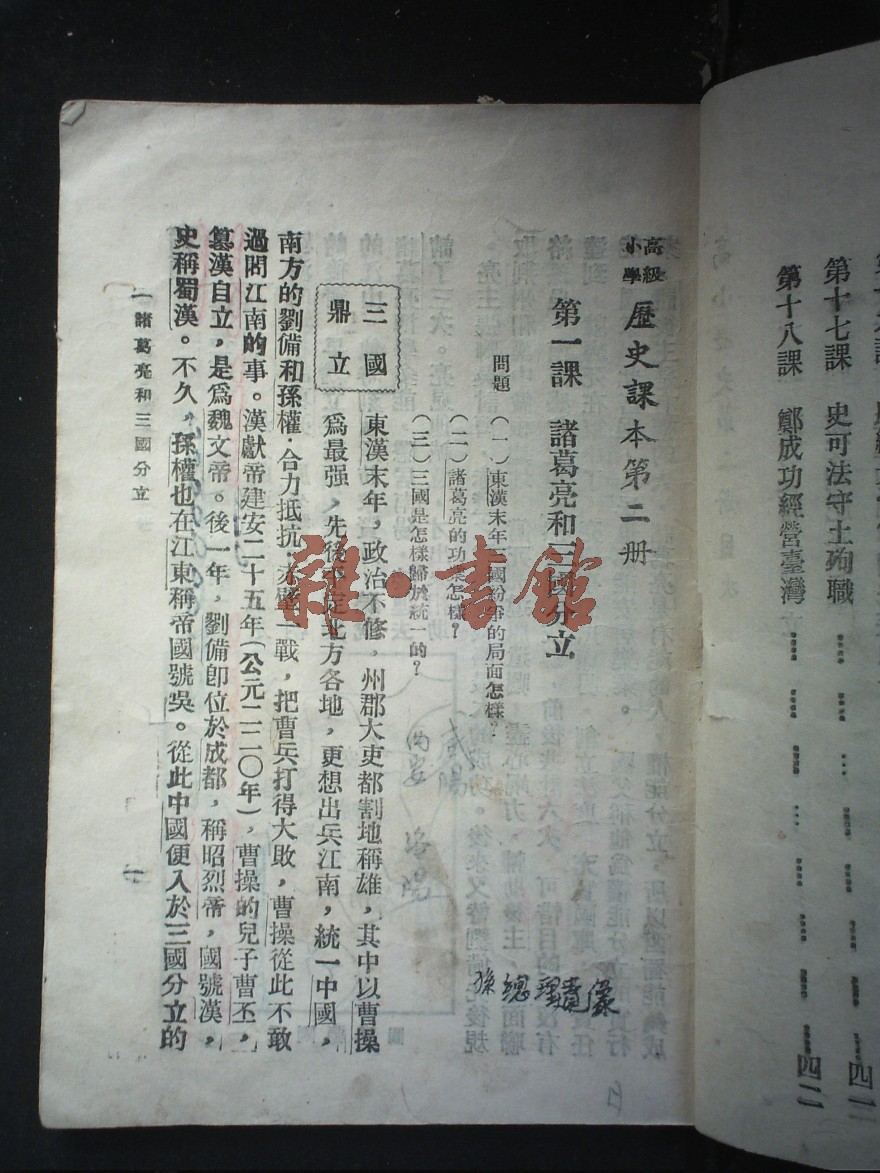 第十七課　史可法守土殉職 四一
第十八課　鄭成功經營臺灣 四二
高級小學 歷史課本第二册
第一課　諸葛亮和三國分立
問題　(一)東漢末年三國紛爭的局面怎樣?
(二)諸葛亮的功業怎樣?
(三)三國是怎樣歸於統一的?
三國鼎立
東漢末年，政治不修，州郡大吏都割地稱雄，其中以曹操
爲最强，先後平定北方各地，更想出兵江南，統一中國，
南方的劉備和孫權，合力抵抗，赤壁一戰，把曹兵打得大敗，曹操從此不敢
過問江南的事。漢獻帝建安二十五年(公元二二〇年)，曹操的兒子曹丕，
篡漢自立，是爲魏文帝。後一年，劉備卽位於成都，稱昭烈帝，國號漢，
史稱蜀漢。不久，孫權也在江東稱帝國號吳。從此中國便入於三國分立的
一 諸葛亮和三國分立
一
咸陽
西安 洛陽
孫總理
雜·書館